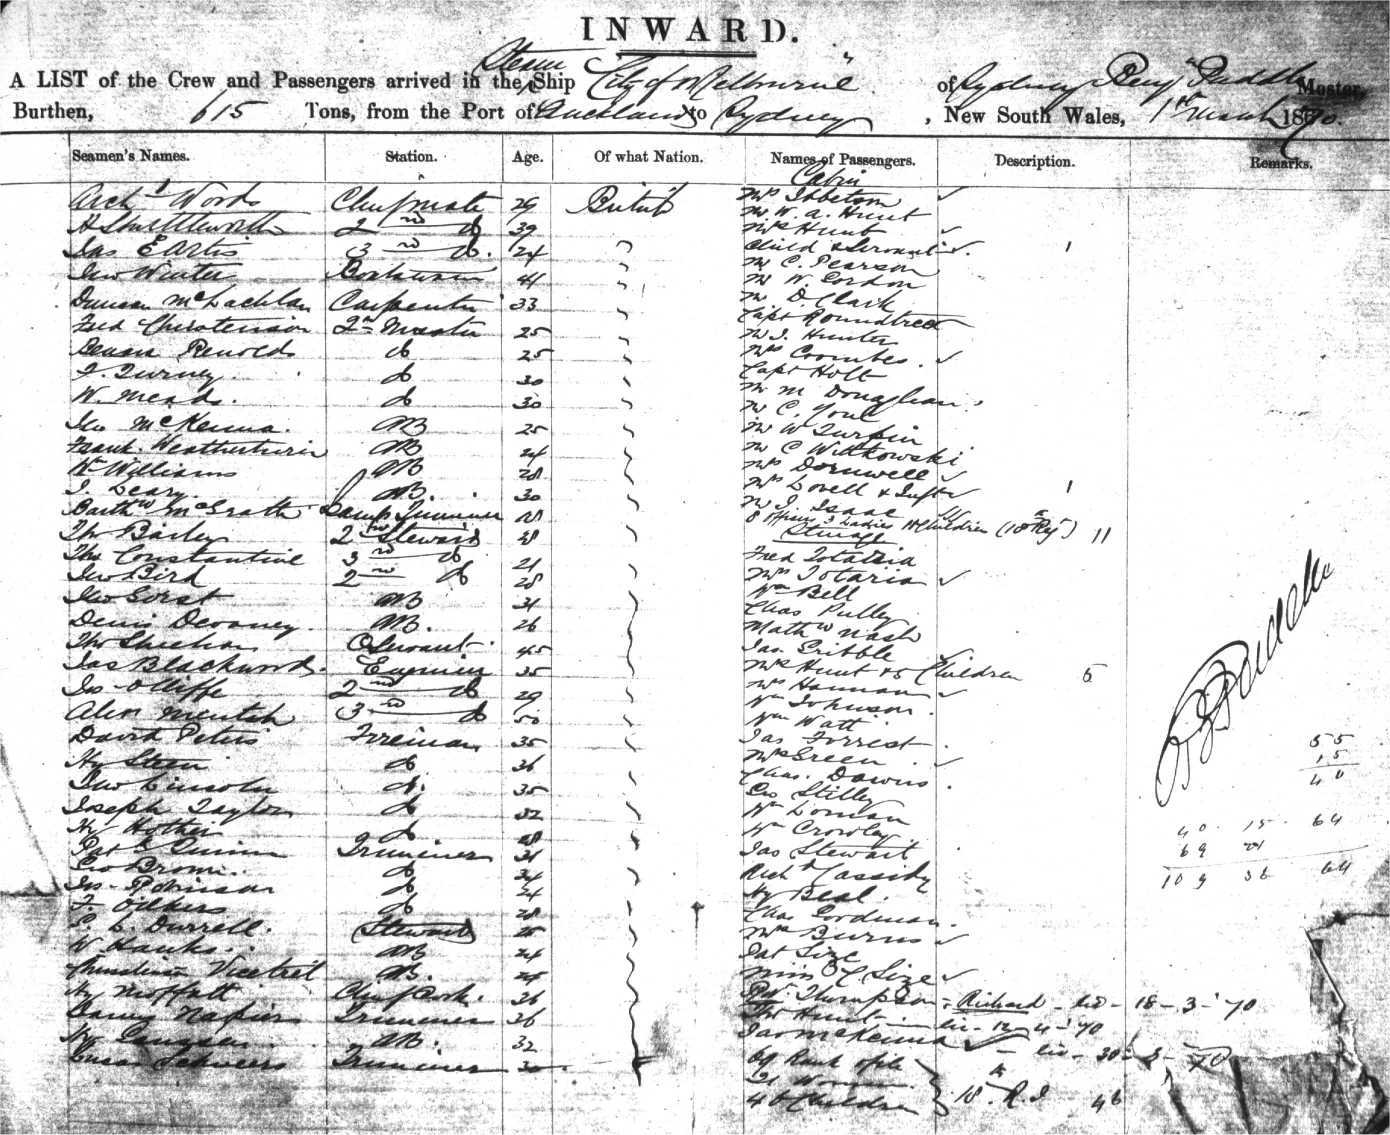 INWARD.
A LIST of the Crew and Passengers arrived in the Steam Ship "City of Melbourne" of Sydney, Master,
Burthen, 615 Tons, from the Port of Auckland to Sydney, New South Wales, 1st March 1870.
Seamen's Names. Station. Age. Of what Nation. Names of Passengers. Description. Remarks.
Cabin
Archd Woods Chief mate 29 British Mrs Ibbetson
Mr W. A. Hunt
H Shuttleworth 2nd do 39 Mrs Hunt
Jas E Artis 3rd do. 24 Child & Servant 1
Mr C. Pearson
Geo Winter Boatswain 41 Mr W Gordon
Duncan McLachlan Carpenter 33 Mr D. Clark
Fred Christenson 25 Capt Roundtree
Mr J. Hunter
Renolds do 25 Mrs Coombes
T. Turney do 30 Capt Holt
W. Mead. do 30 Mr M Donaghan
Mr C. Youl
Geo McKenna. AB 25 Mr W Turpin
Frank AB 24 Mr C Witkowski
Wm Williams AB 28 Mrs Dornwell
J. Leary AB. 30 Mrs Lovell & Infant 1
Barthw McGrath Lamp Trimmer 28 Mr J. Isaac
8 officers 3 Ladies Children 11
Thos Bailey 2nd Steward 48 Steerage
Thos Constantine 3rd do 21 Fred Totaria
Geo Bird 2nd do 28 Mrs Totaria
Wm Bell
Geo Gorst AB 31 Chas Pulley
Denis Devaney. AB. 26 Mathw Nash
Thos Sheehan Servant 45 Jas Gribble
Jas Blackwood. Engineer 35 Mrs Hunt & 5 Children 5
Jos Olliffe 2nd do 29 Mrs Hannan
Wm Johnson
Alexr 3rd do 50 Wm Watt
David Peters Fireman 35 Jas Forrest
Hy Steen do 36 Mrs Green
Geo Lincoln do. 35 Chas. Downs
Joseph Taylor do 32 Geo Stilley
Wm Loman
Hy Hother do 28 Wm Crowley
Pat Quinn Trimmer 31 Jas Stewart
Geo Brown. do 34 Richd Cassidy
Jos Robinson do 24 Hy Beal.
F. do 28 Chas Goodman
C. L. Durrell. Steward 25 Mrs Burns
W Hanks. AB 24 Pat Size
Christian AB. 24 Miss C Size
Hy Moffatt Chief Cook. 26 Thompson = Richard - 18 - 3 - '70
Harry Napier Trimmer 36 Thos Hunt - 12 - 4 - '70
AB. 32 Jas McKenna - 30 - 3 - 70
Trimmer 30 69 Rank & file
21 Women
46 Children 18th R. I 46
55
15
40
40 . 15 . 64
69 21
109 36 64